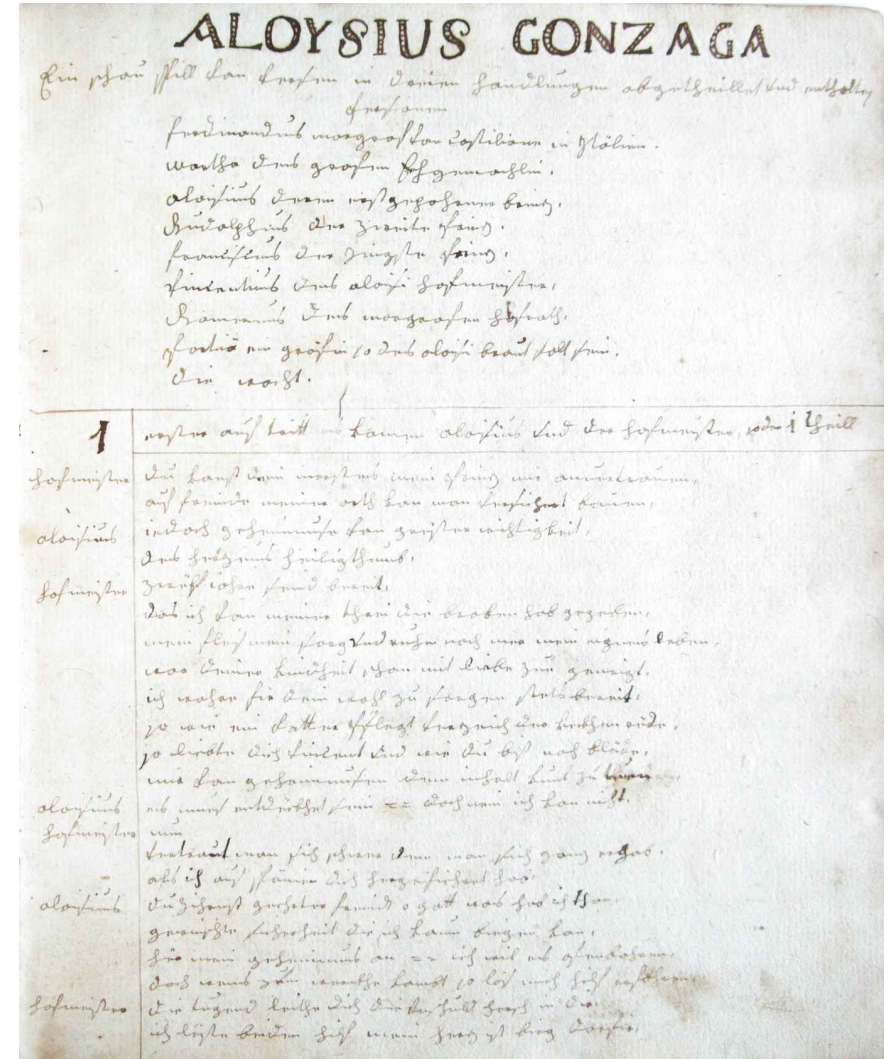 ALOYSIUS GONZAGA
Ein schau spill von versen in dreien handlungen abgetheillet und enthalten
persionen
ferdinandus margraf von castilione in Italien.
martha des grafen Ehgemachlin.
aloisius deren erstgebohrner brinz.
Rudolphus der zweite prinz.
franciscus der jingste prinz.
vincentius des aloisi hofmeister.
des margrafen hofrath.
ein gräfin so des aloisi braut solt sein.
die wacht.
1 erster auf tritt es komen aloisius und der hofmeister, oder 1 theill
hofmeister du kanst dein mein prinz mir anvertrauen,
auf freinde meiner arth kan man versichert bauen,
aloisius iedoch geheimnuse von wichtigkeit,
des herzens heiligthums,
hofmeister zwölf iahre seind bereit,
das ich von meiner threi die broben hab gegeben,
mein fleis mein sorg und mein eignes leben,
war deiner kindheit schon mit liebe zu geneigt,
ich wahre fir dein wohl zu sorgen stets bereit,
so wie ein vatter pflegt
so liebte dich vincent und wie du bist noch blöde,
mir von geheimnusen den inhalt kunt zu thuen
aloysius es mues entdekhet sein == doch nein ich kan nicht.
hofmeister nun
vertraut man sich schwer dem, man sich ganz
als ich auf spanien dich hergefiehret hab.
aloisius geehrter freind o gott was hab ich than
sicherheit die ich kaum kan,
hör mein geheimnus an == ich wil es ofenbahren,
doch so las mich hilf erfahren
hofmeister die tugend leithe dich die unschuld hersch in dir
ich leiste beiden hilf mein herz ist birg darfir,